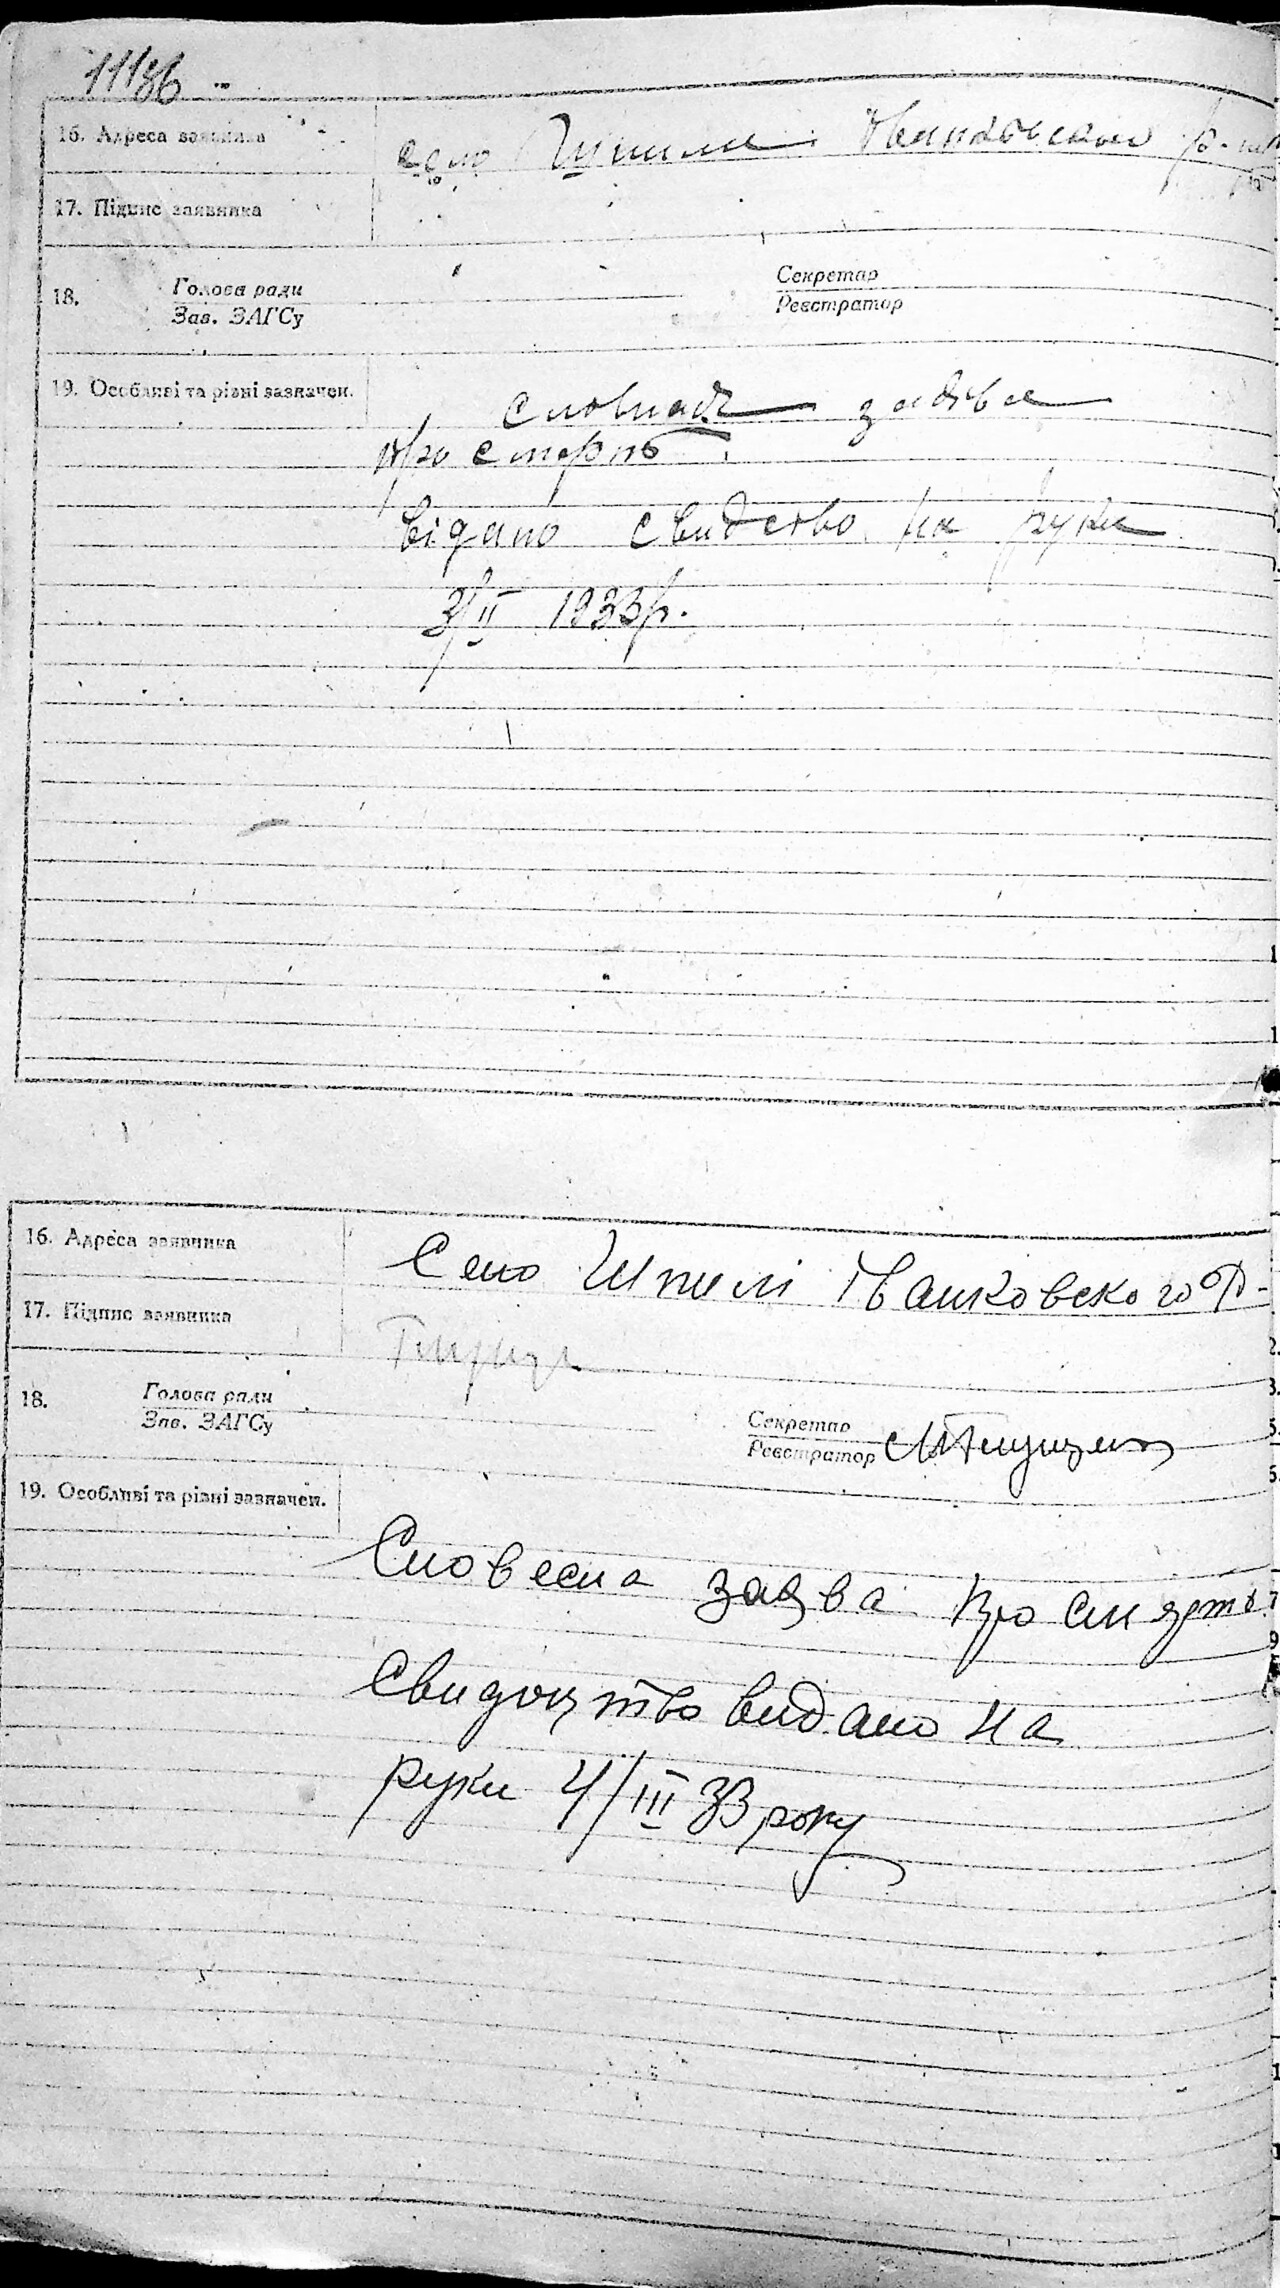 16. Адреса заявника село Шпили р-н
17. Підпис заявника
18. Голова ради Секретар
Зав. ЗАГСу Реєстратор
19. Особливі та різні зазначен.
заява
про смерть
відано свидство на руки
3/II 1933р.
16. Адреса заявника Село Шпилі Іванковського Р-
17. Підпис заявника
18. Голова ради Секретар
Зав. ЗАГСу Реєстратор
19. Особливі та різні зазначен.
Словесна заява про смярть
Свидоцтво видано на
руки 4/III 33 року